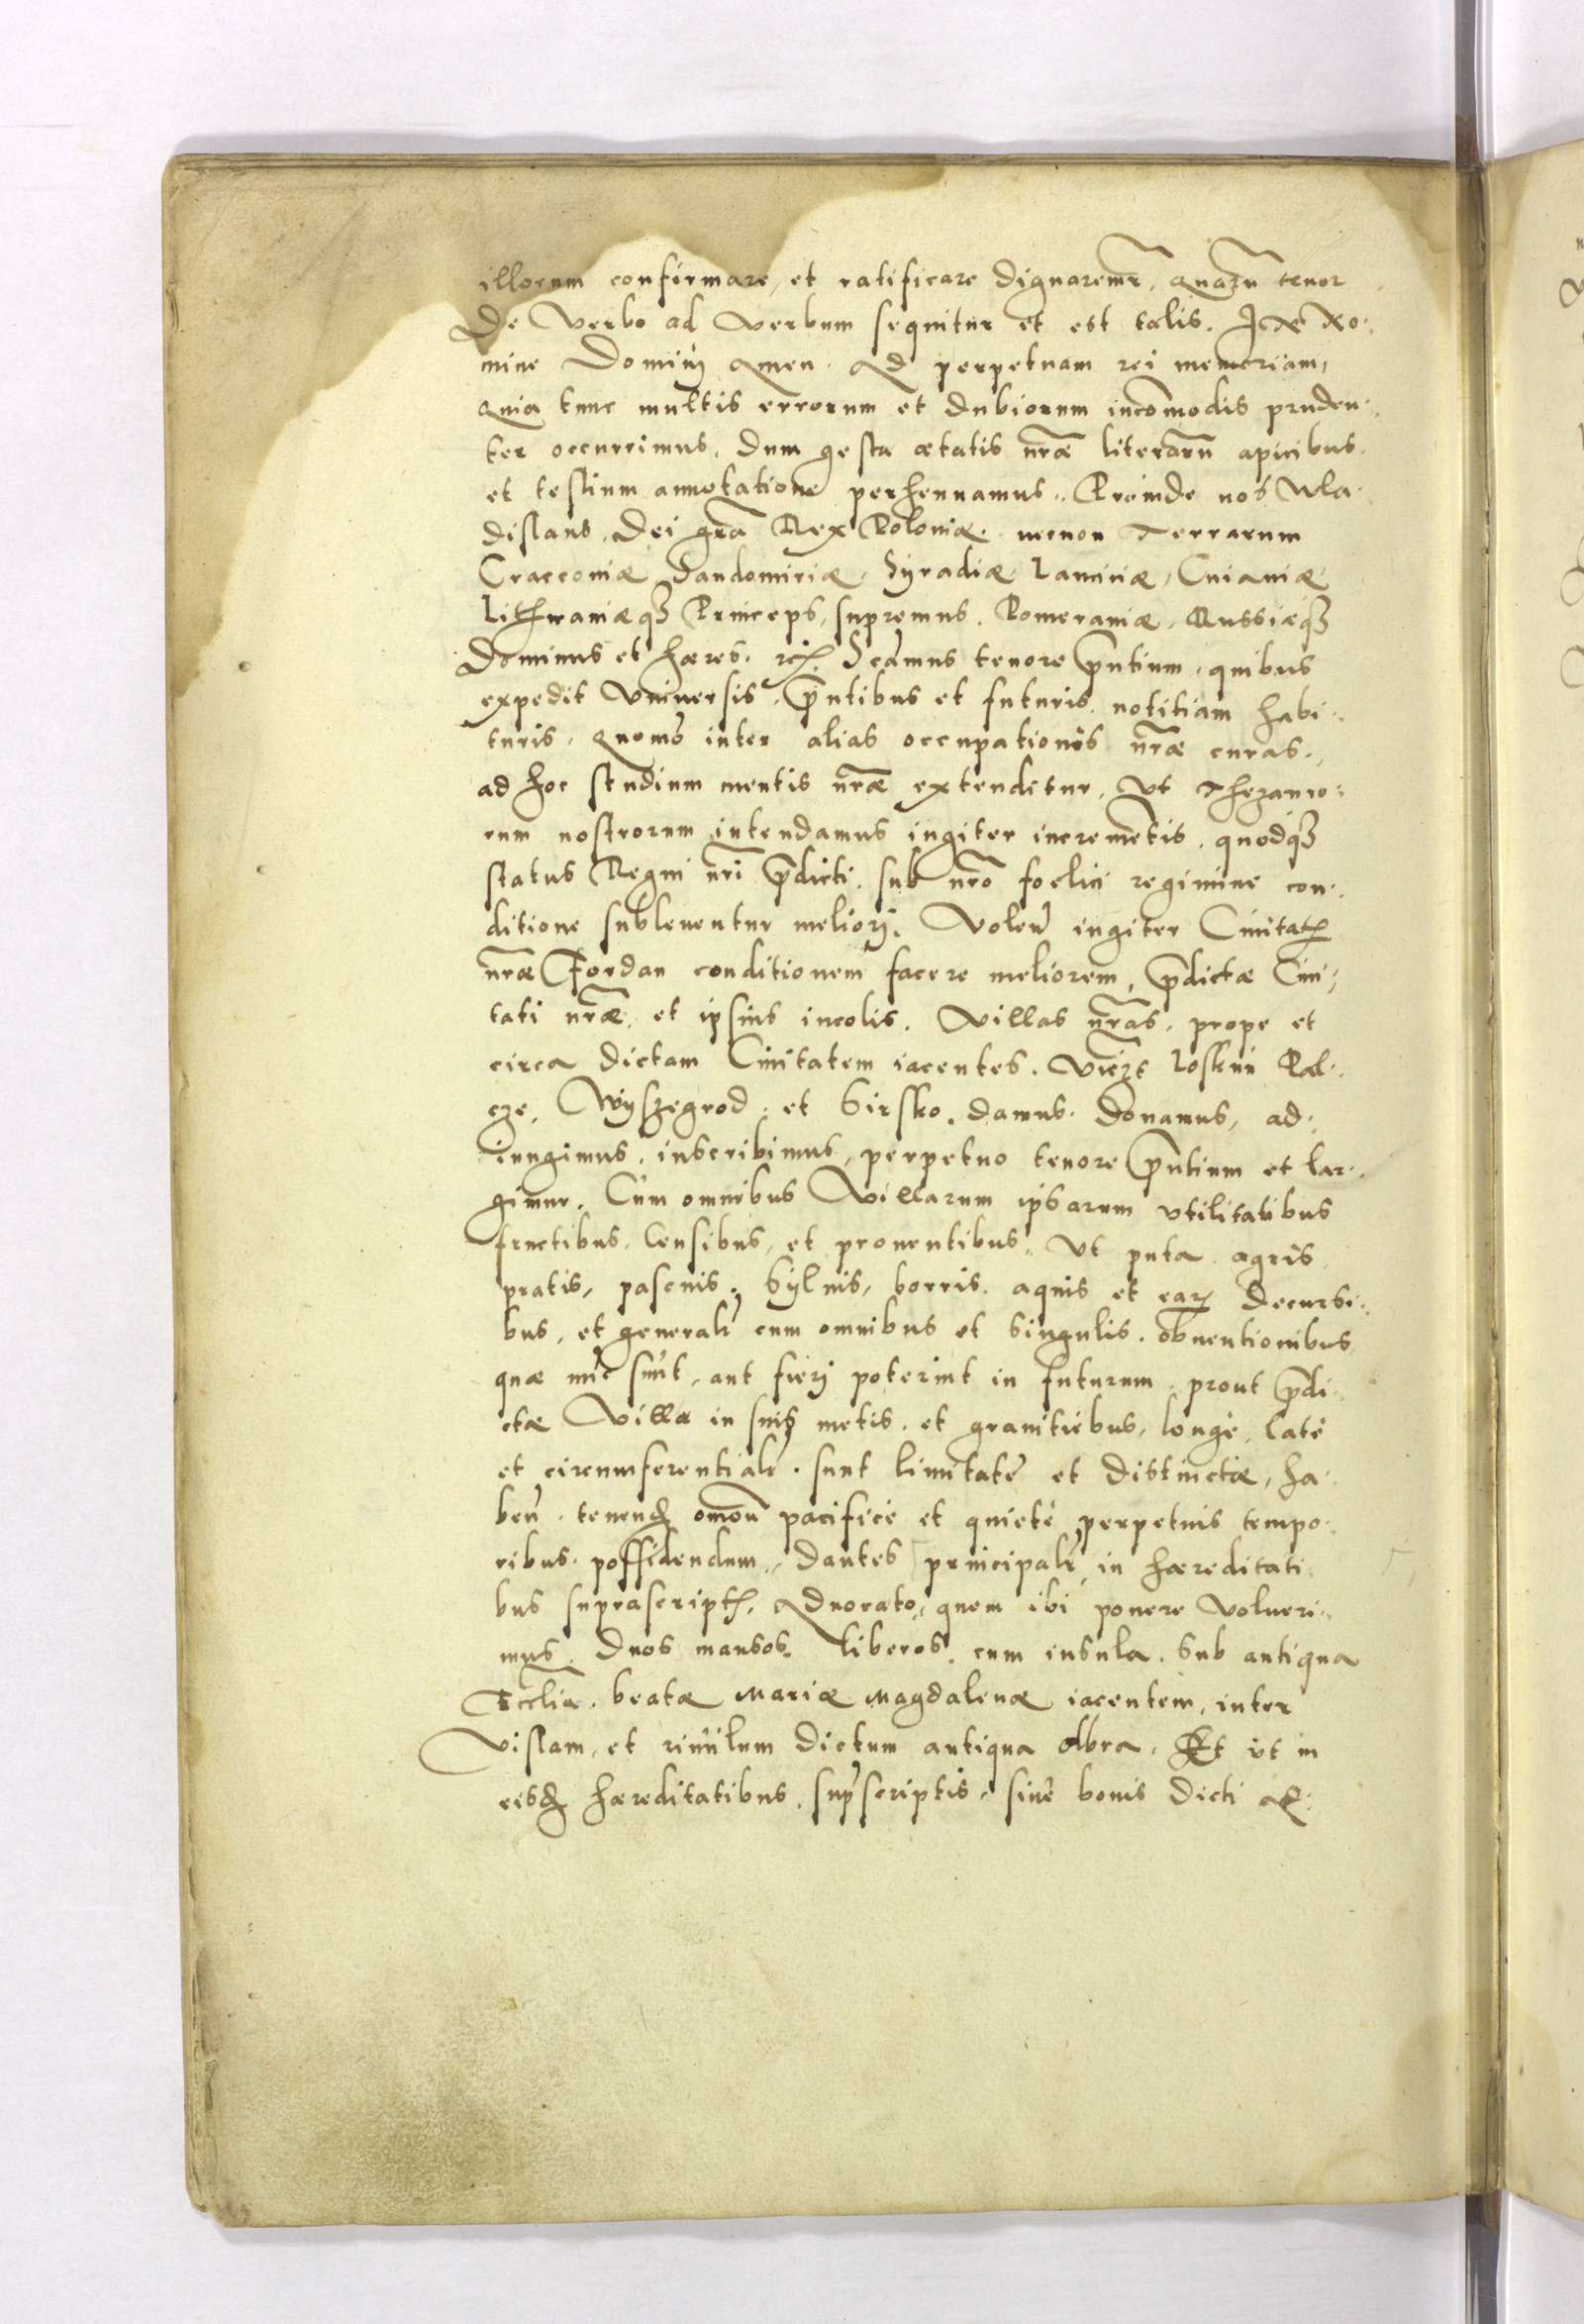 illorum confirmare, et ratificare dignaremr̄, Quarū tenor
De Verbo ad Verbum sequitur et est talis. IN NO
mine Domini Amen. Ad perpetuam rei memoriam,
Quia tunc multis errorum et dubiorum incōmodis pruden
ter occurrimus, dum gesta ætatis nr̄æ literarū apicibus
et testium annotatione perhennamus. Proinde nos Wla
dislaus, Dei gr̄a Rex Poloniæ. necnon Terrarum
Craccouiæ Sandomiriæ, Syradiæ Lanciciæ, Cuiauiæ
Lithwaniæq3 Princeps, supremus. Pomeraniæ, Russiæq3
Dominus et hæres. etc̄. Scimus tenore pn̄tium, quibus
expedit Vniuersis, pn̄tibus et futuris, notitiam habi
turis, quomō inter alias occupationis nr̄æ curas,
ad hoc studium mentis nr̄æ extenditur, Vt Thezauro
rum nostrorum intendamus iugiter incremētis, quodq3
status Regni nr̄i p̄dicti, sub nr̄o foelici regimine con
ditione subleuentur meliori. Volen̄ iugiter Ciuitat̄
nr̄æ Fordan conditionem facere meliorem, p̄dictæ Ciui
tati nr̄æ, et ipsius incolis, Villas nr̄as, prope et
circa dictam Ciuitatem iacentes, Vicz̄t Loskun Pal
cze, Wyszegrod, et Sirsko, damus, Donamus, ad
iungimus, inscribimus, perpetuo tenore pn̄tium et lar
gimur, Cum omnibus Villarum ipsarum vtilitatibus
fructibus, Censibus, et prouentibus, Vt puta agris
pratis, pascuis, Syluis, borris, aquis et earꝝ decursi
bus, et generalr̄ cum omnibus et singulis, obuentionibus
quæ nūc sunt, aut fieri poterint in futurum, prout p̄di
ctæ Villæ in suis metis, et granitiebus, longè, latè
et circumferentialr̄, sunt limitatæ et distinctæ, ha
ben̄, tenend̄ omōn pacificè et quietè perpetuis tempo
ribus possidendum, Dantes principalr̄, in hæreditati
bus suprascript̄, Aduocato, quem ibi ponere Volueri
mus, Duos mansos Liberos, cum insula, sub antiqua
Eccliæ, beatæ Mariæ Magdalenæ iacentem, inter
Vislam, et riuulum dictum antiqua Dbra, Et vt in
eisd̄ hæreditatibus, supr̄scriptis, siue bonis dicti Ad